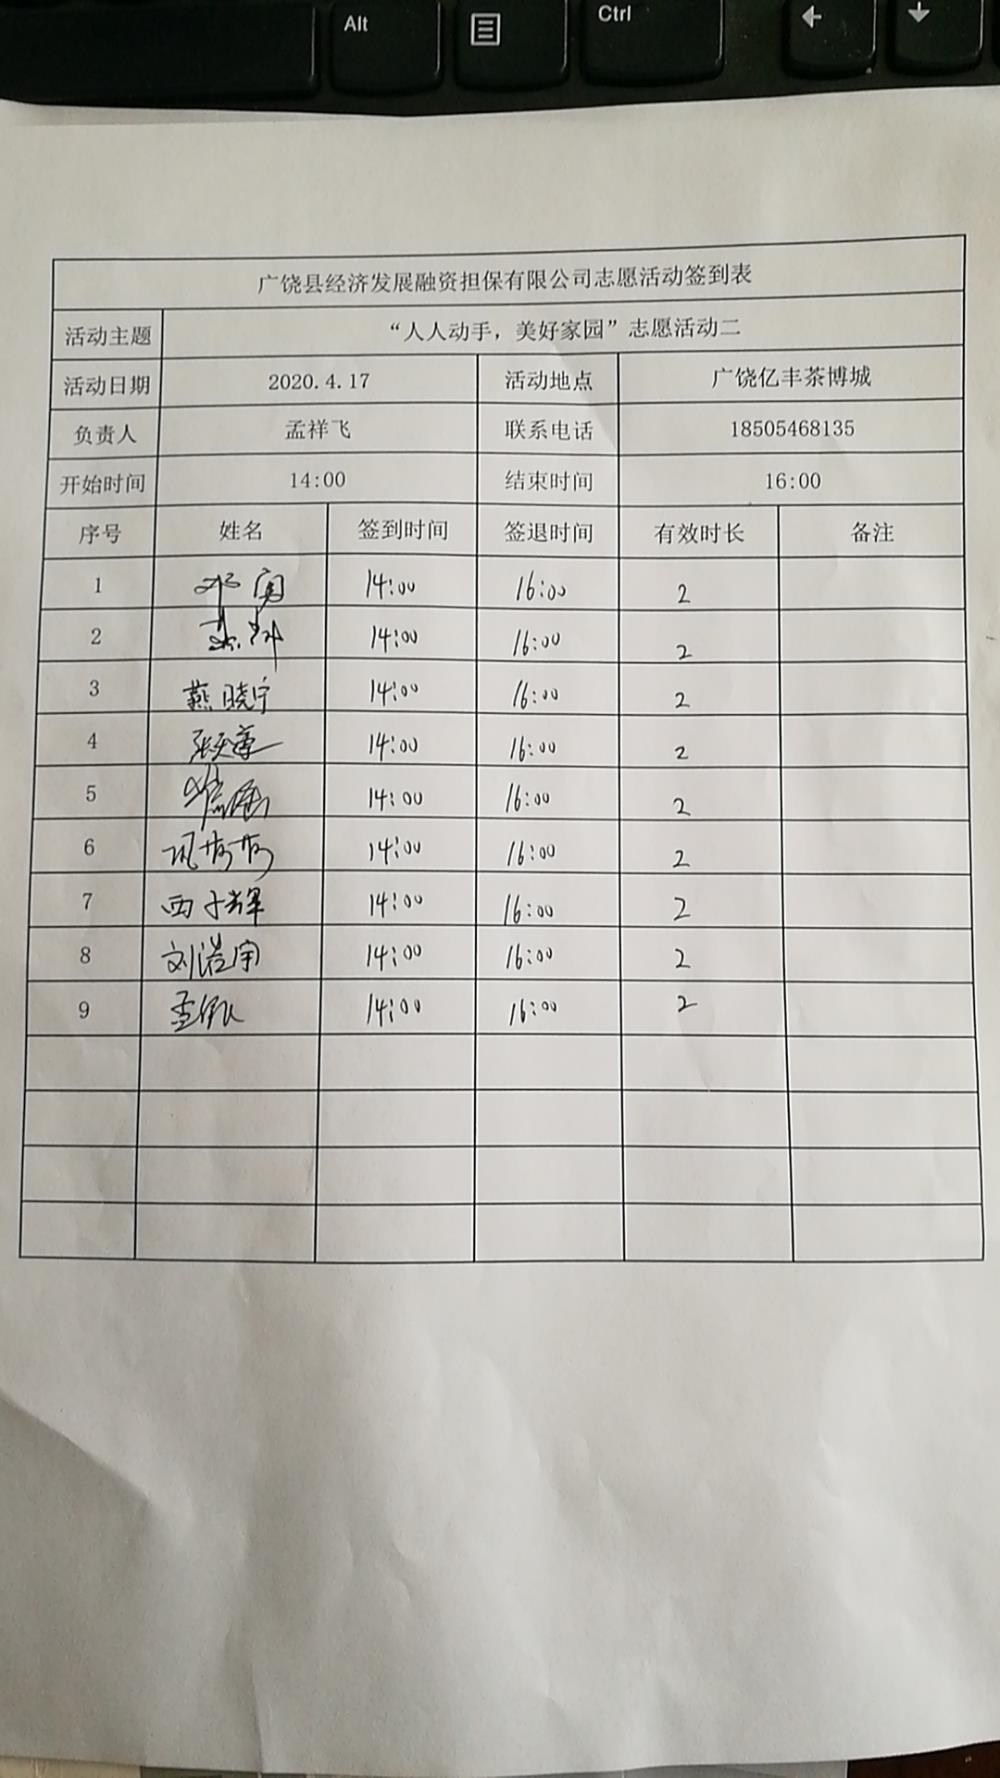 Alt
Ctrl
广饶县经济发展融资担保有限公司志愿活动签到表
活动主题 “人人动手，美好家园”志愿活动二
活动日期 2020.4.17 活动地点 广饶亿丰茶博城
负责人 孟祥飞 联系电话 18505468135
开始时间 14:00 结束时间 16:00
序号 姓名 签到时间 签退时间 有效时长 备注
1 14:00 16:00 2
2 14:00 16:00 2
3 燕晓宁 14:00 16:00 2
4 14:00 16:00 2
5 14:00 16:00 2
6 14:00 16:00 2
7 西子辉 14:00 16:00 2
8 刘浩宇 14:00 16:00 2
9 14:00 16:00 2